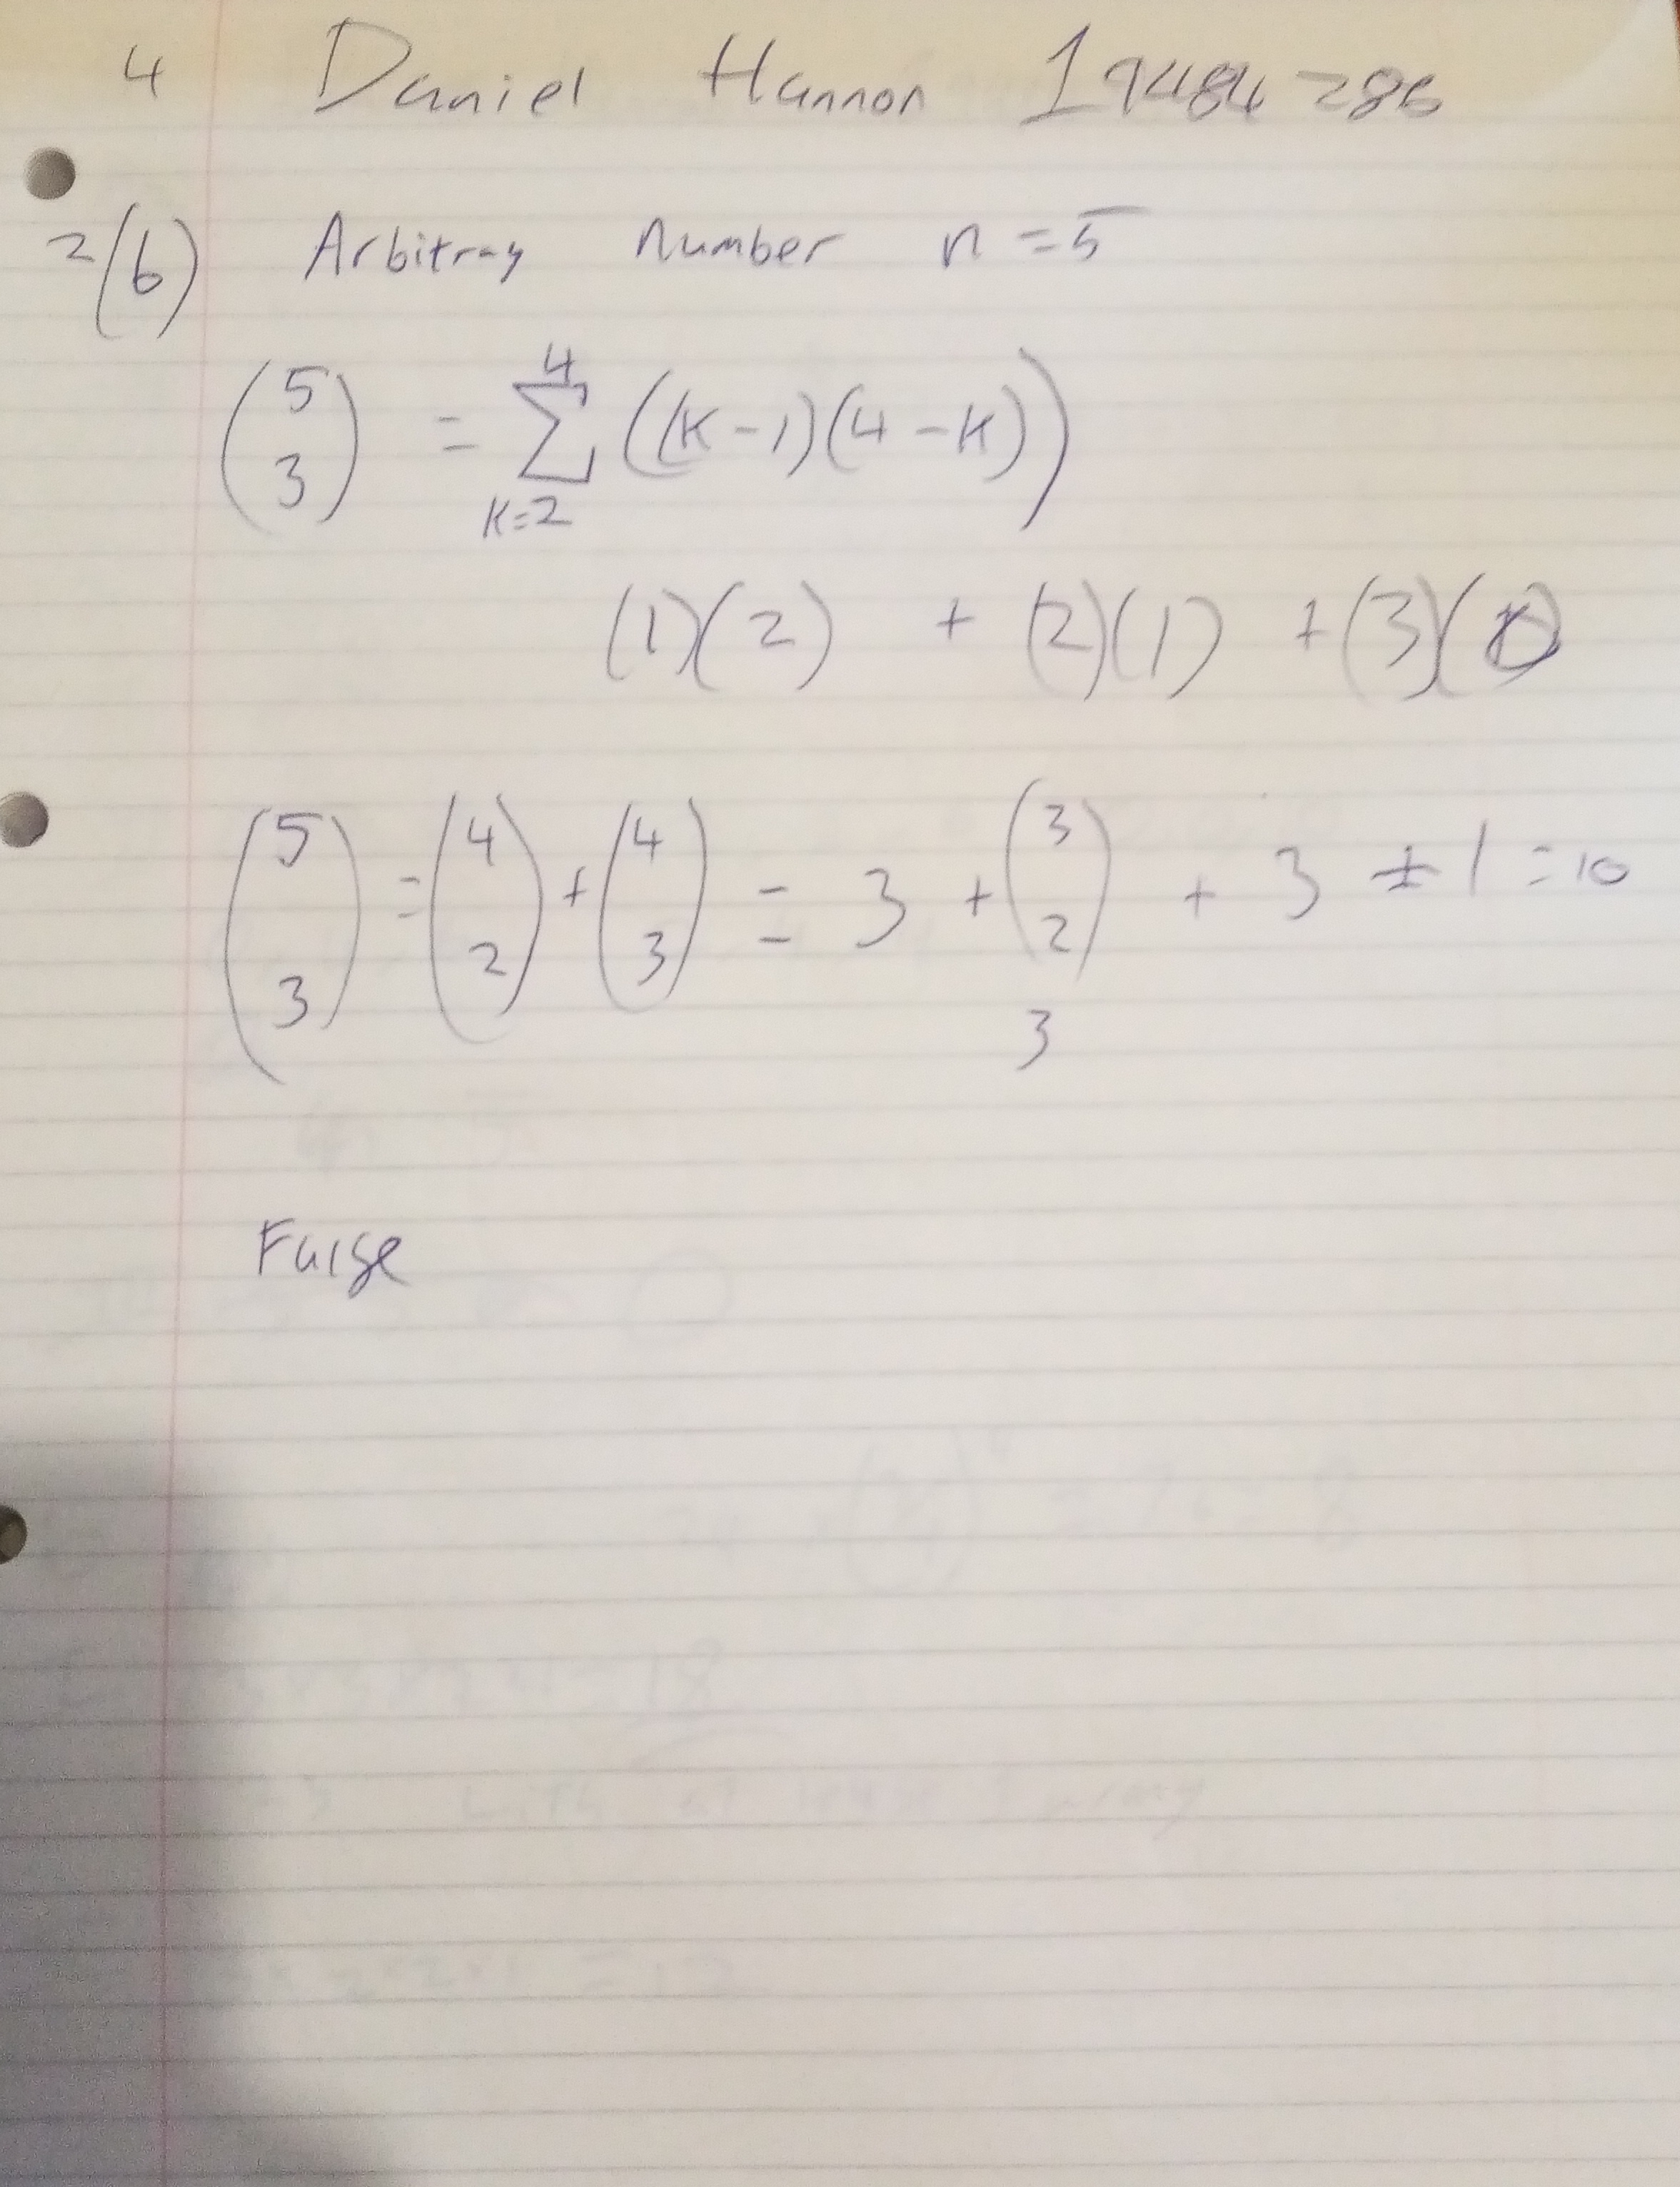 4 Daniel Hannon 19484286
2(b) Arbitray number n = 5
(5 3) = 4 Σ K=2 ((K-1)(4-K))
(1)(2) + (2)(1) + (3)(0)
(5 3) = (4 2) + (4 3) = 3 + (3 2) + 3 + 1 = 10
3
False